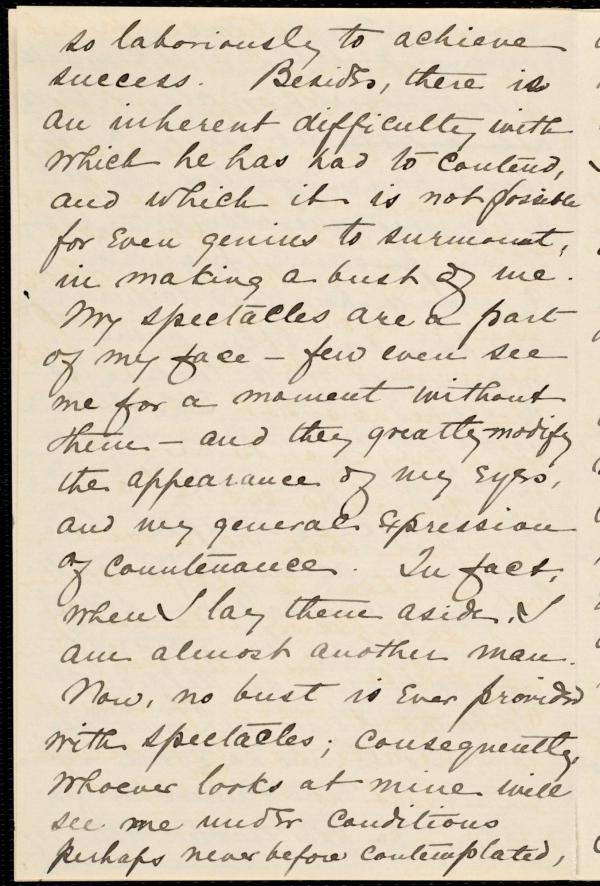 so laboriously to achieve
success. Besides, there is
an inherent difficulty with
which he has had to contend,
and which it is not possible
for even genius to surmount,
in making a bust of me.
My spectacles are a part
of my face – few even see
me for a moment without
them – and they greatly modify
the appearance of my eyes,
and my general expression
of countenance. In fact,
when I lay them aside, I
am almost another man.
Now, no bust is ever provided
with spectacles; consequently,
whoever looks at mine will
see me under conditions
perhaps never before contemplated,